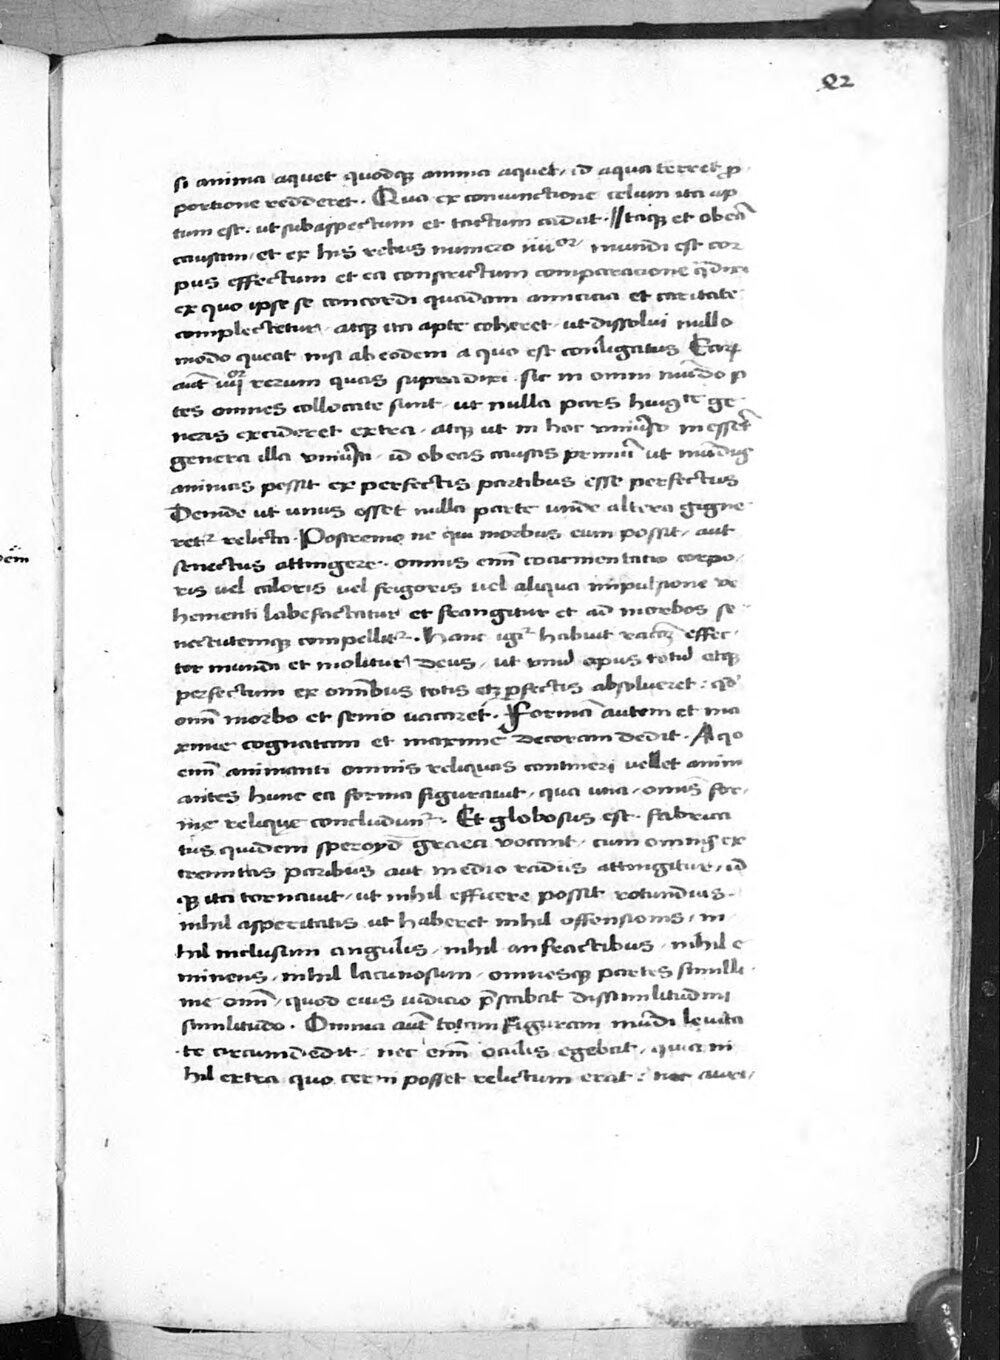 82
si anima aquet quodqꝫ anima aquet, id aqua terret ꝓ
portione redderet. Qua ex coniunctione celum ita ap
tum est. ut sub aspectum et tactum cadat. Itaqꝫ et ob eā
causam, et ex his rebus numero iiiiᵒʳ mundi est cor
pus effectum et ea constrictum comparatione q̄ dixi
ex quo ipse se concordi quadam amicicia et caritate
complectetur, atqꝫ ita apte coheret, ut dissolui nullo
modo queat nisi ab eodem a quo est conligatus Earꝝ
aut̄ iiiiᵒʳ rerum quas supra dixi sic in omni mūdo p
tes omnes collocate sunt, ut nulla pars huiꝰce ge
neris excideret extra, atqꝫ ut in hoc vniūso inessēt
genera illa vniūsa, id ob eas causas primū ut mūdꝰ
animas possit ex perfectis partibus esse perfectus
Deinde ut unus esset nulla parte unde altera gigne
retᷣ relicta. Postremo ne qui morbus eum possit, aut
senectus attingere. omnis enī coacmentatio corpo,
ris uel caloris uel frigoris uel aliqua impulsione ve
hementi labefactatur et frangitur et ad morbos se
nectutemqꝫ compellitᷣ. Hanc igiᷣ habuit racōꝫ effec
tor mundi et molitur deus, ut vnū opus totū atqꝫ
perfectum ex omībus totis etqꝫ ꝑfectis absolueret: qd̄
omī morbo et senio uacaret. Formā autem et ma
xime cognatam et maxime decoram dedit. A quo
enī animanti omnis reliquas contineri vellet anim
antes hunc ea forma figurauit, qua una, omīs for,
me relique concludunᷣ. Et globosus est. fabrica
tus quidem speroyd̄ graeci vocant, cum omnis ex
tremitas paribus aut medio radiis attingitur, id
qꝫ ita tornauit, ut nihil efficere possit rotundius.
nihil asperitatis ut haberet nihil offensionis, ni
hil inclusum angulis, nihil anfractibus, nihil e
minens, nihil lacunosum, omnesqꝫ partes simili
me omī, quod eius iudicio p̄stabat dissimilitudini
similitudo. Omnia aut̄ totam figuram mūdi leuita
te circumdedit. nec enī oculis egebat, quia ni
hil extra quo cerni posset relictum erat: nec auri,